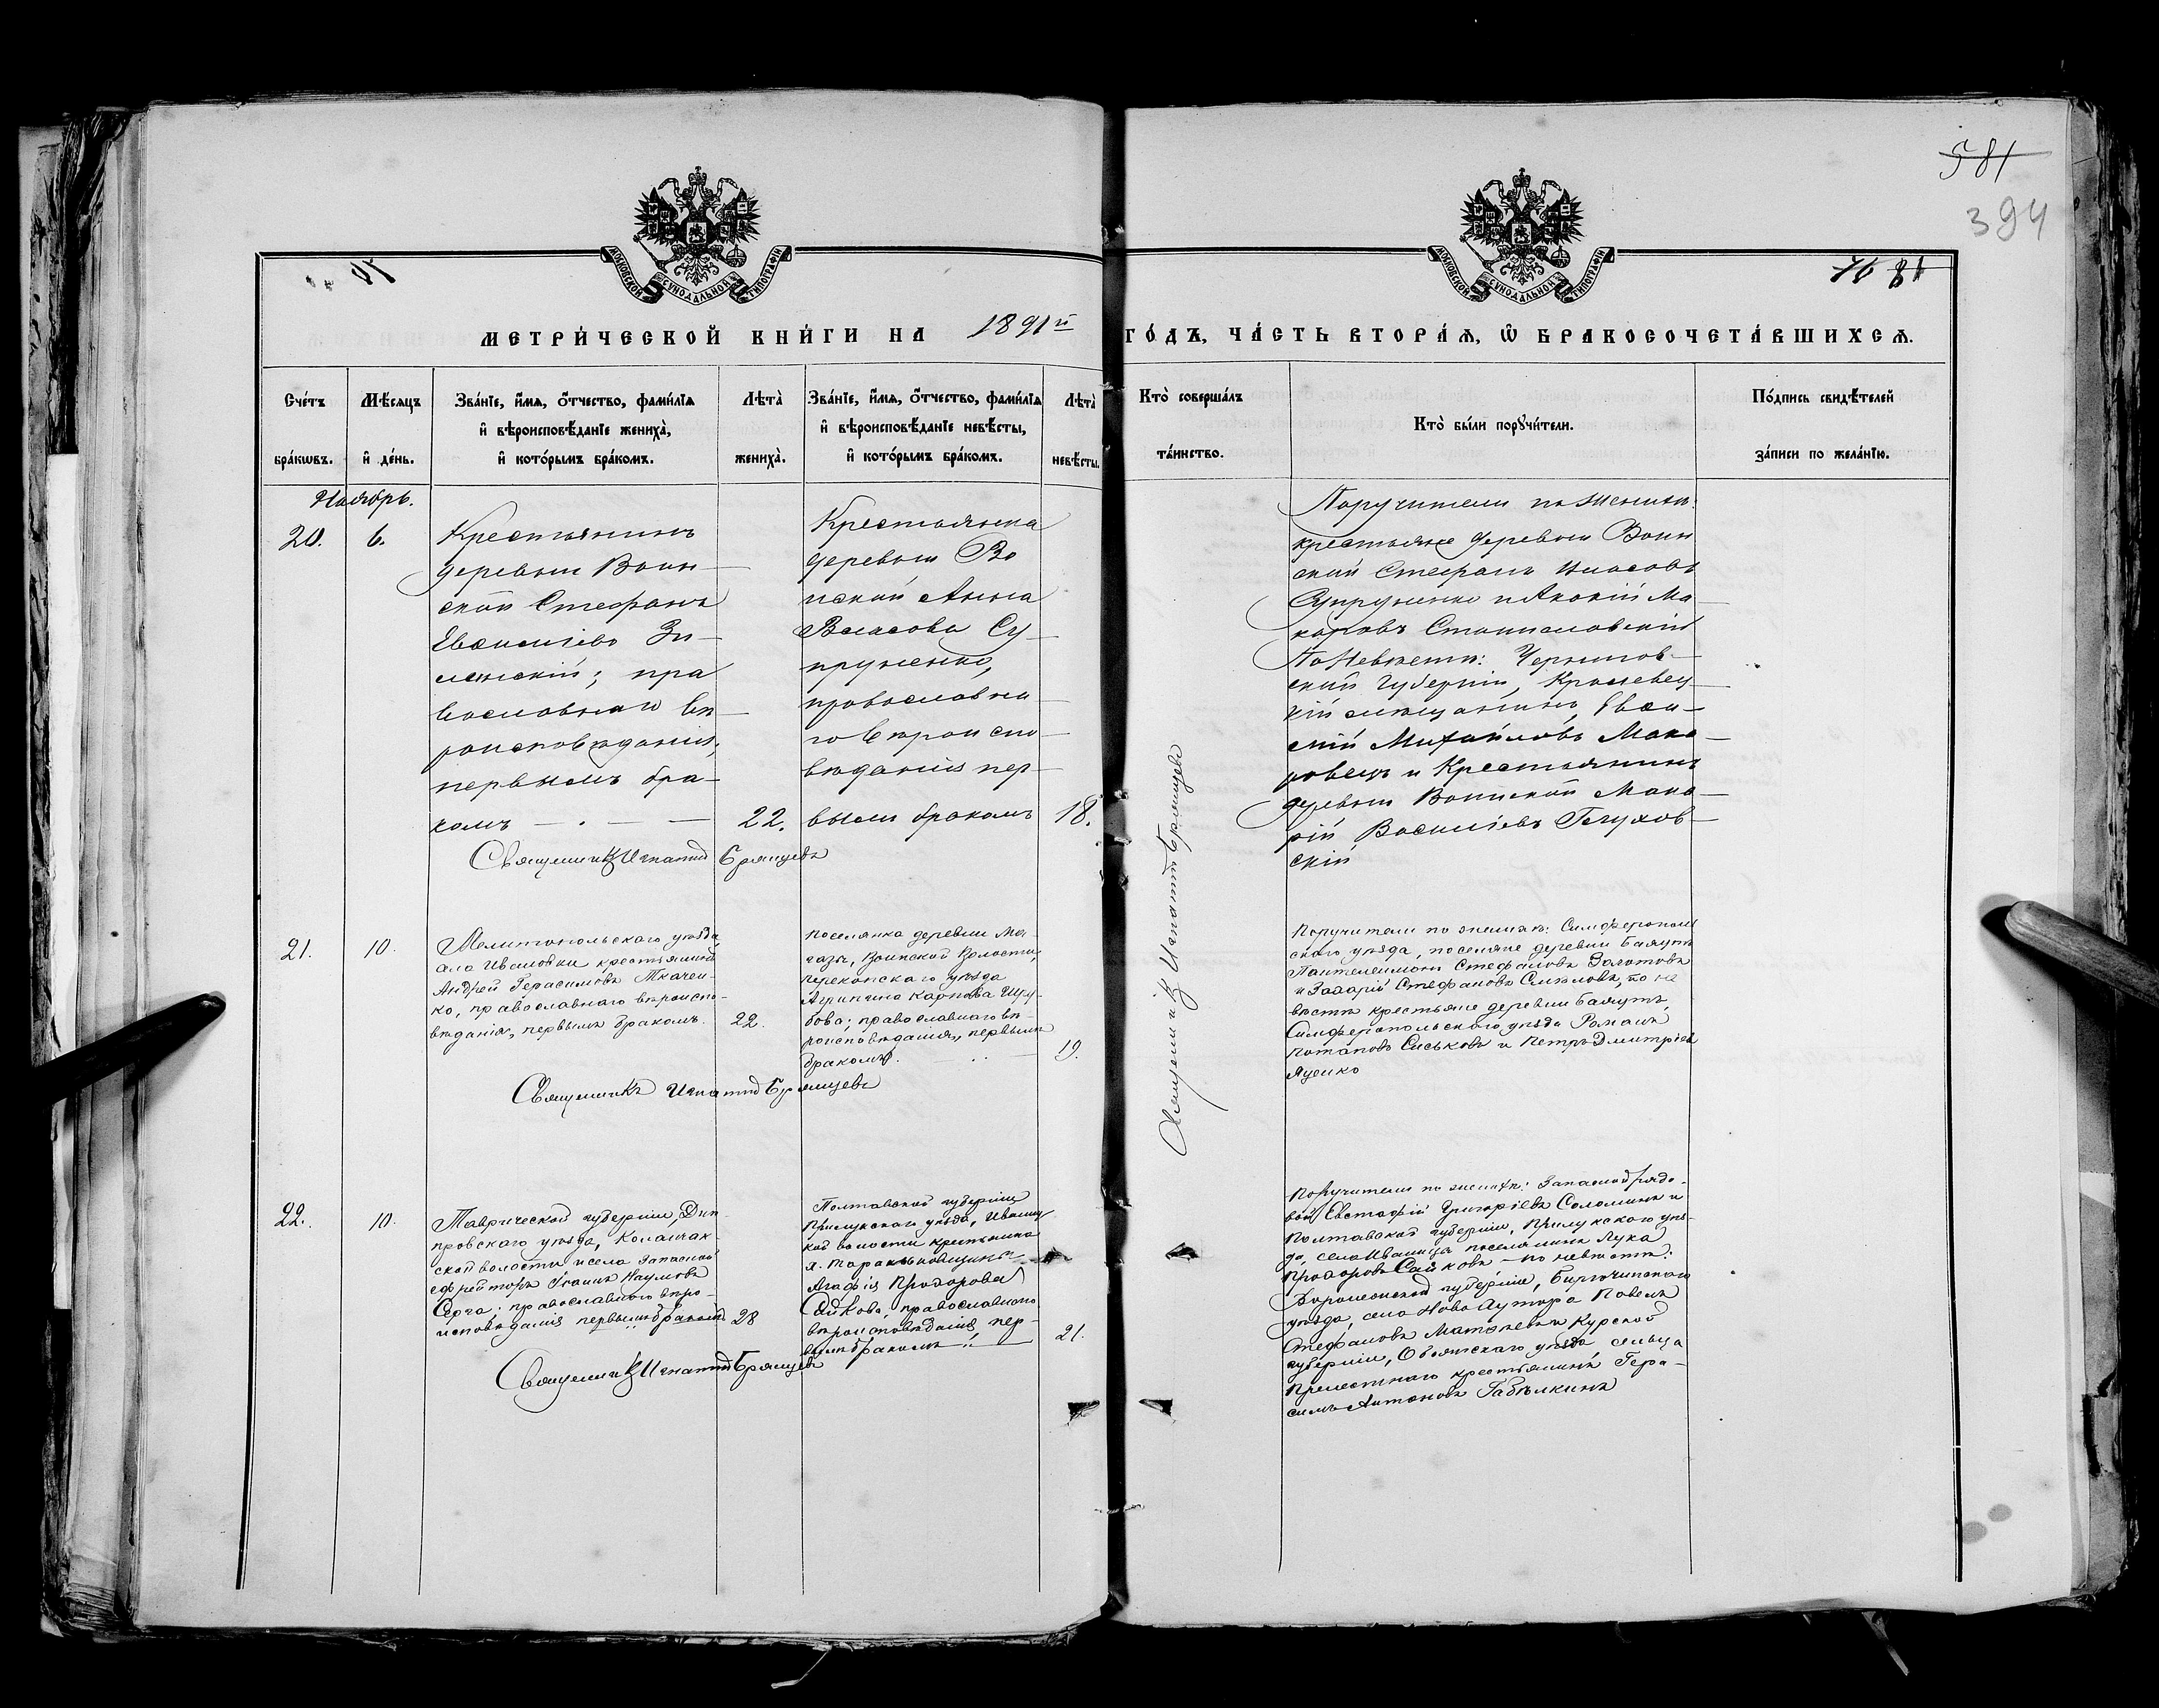 581
394
41
76 81
МОСКОВСКОЙ СѴНОДАЛЬНОЙ ТИПОГРАФІИ
МОСКОВСКОЙ СѴНОДАЛЬНОЙ ТИПОГРАФІИ
МЕТРИ́ЧЕСКОЙ КНИ́ГИ НА 1891й ГО́ДЪ, ЧА́СТЬ ВТОРА́Ѧ, Ѡ БРАКОСОЧЕТА́ВШИХСѦ.
Сче́тъ
бра́кѡвъ.
Мѣ́сяцъ
и҆ де́нь.
Зва́нїе, и҆́мѧ, ѻ҆́тчество, фами́лїя
и҆ вѣроисповѣ́данїе жениха̀,
и҆ кото́рымъ бра́комъ.
Лѣта̀
жениха̀.
Зва́нїе, и҆́мѧ, ѻ҆́тчество, фами́лїя
и҆ вѣроисповѣ́данїе невѣ́сты,
и҆ кото́рымъ бра́комъ.
Лѣта̀
невѣ́сты.
Кто̀ соверша́лъ
та́инство.
Кто̀ бы́ли порꙋчи́тели.
По́дпись свидѣ́телей
за́писи по жела́нїю.
Ноябрь.
20.
6.
Крестьянинъ
деревни Воин-
ской Стефанъ
Евсиміевъ Зи-
ленскій; пра
вославнаго вѣ-
роисповѣданія,
первымъ бра-
комъ
22.
Крестьянка
деревни Во
инской Анна
Власова Су-
пруненко,
православна
го вѣроиспо-
вѣданія пер-
вымъ бракомъ
18.
Священникъ Игнатій Брянцевъ
Поручители по женихѣ:
крестьяне деревни Воин
ской Стефанъ Власовъ
Супруненко и Акакій Ма
каровъ Станиславскій
По Невѣстѣ: Чернигов-
ской Губерніи, Кролевец-
кій мѣщанинъ,
Михайловъ Мака-
ровецъ и Крестьянинъ
деревни Воинской Мака-
рій Васильевъ Глухов-
скій
Священникъ Игнатій Брянцевъ
21.
10.
Мелитопольскаго уѣзда,
села Ивановки крестьянинъ
Андрей Герасимовъ Ткачен-
ко, православнаго вѣроиспо-
вѣданія, первымъ бракомъ.
22.
поселянка деревни Ма-
газы, Воинской Волости,
перекопскаго уѣзда
Агрипина Карпова Шру-
бова; православнаго вѣ-
роисповѣданія, первымъ
бракомъ.
19.
Священникъ Игнатій Брянцевъ
Поручители по женихѣ: Симферополь
скаго уѣзда, поселяне деревни Баяутъ
Пантелеимонъ Стефановъ Золотовъ
и Захарій Стефановъ Смѣловъ, по не
вѣстѣ крестьяне деревни Баяутъ,
Симферопольскаго уѣзда Романъ
Потаповъ Сиськовъ и Петръ Дмитріевъ
Яценко
22.
10.
Таврической губерніи, Днѣ-
провскаго уѣзда, Каланчак-
ской волости и села запасной
ефрейторъ Іоаннъ Наумовъ
Серга; православнаго вѣро-
исповѣданія первымъ бракомъ
28
Полтавской губерніи
Прилукскаго уѣзда, Иваниц
кой волости крестьянка
Агафія Прохорова
Сайкова, православнаго
вѣроисповѣданія, пер-
вымъ бракомъ
21.
Священникъ Игнатій Брянцевъ
Поручители по женихѣ: запасной рядо-
вой Евстафій Григоріевъ Соломинъ и
Полтавской губерніи, Прилукскаго уѣз-
да, села Иваница поселянинъ Лука
Прохоровъ Сайковъ - по невѣстѣ:
Воронежской губерніи, Бирючинскаго
уѣзда, села Ново Павелъ
Стефановъ и Курской
губерніи, Обоянскаго уѣзда, сельца
Прелестнаго крестьянинъ Гера-
симъ Антоновъ Габѣлкинъ